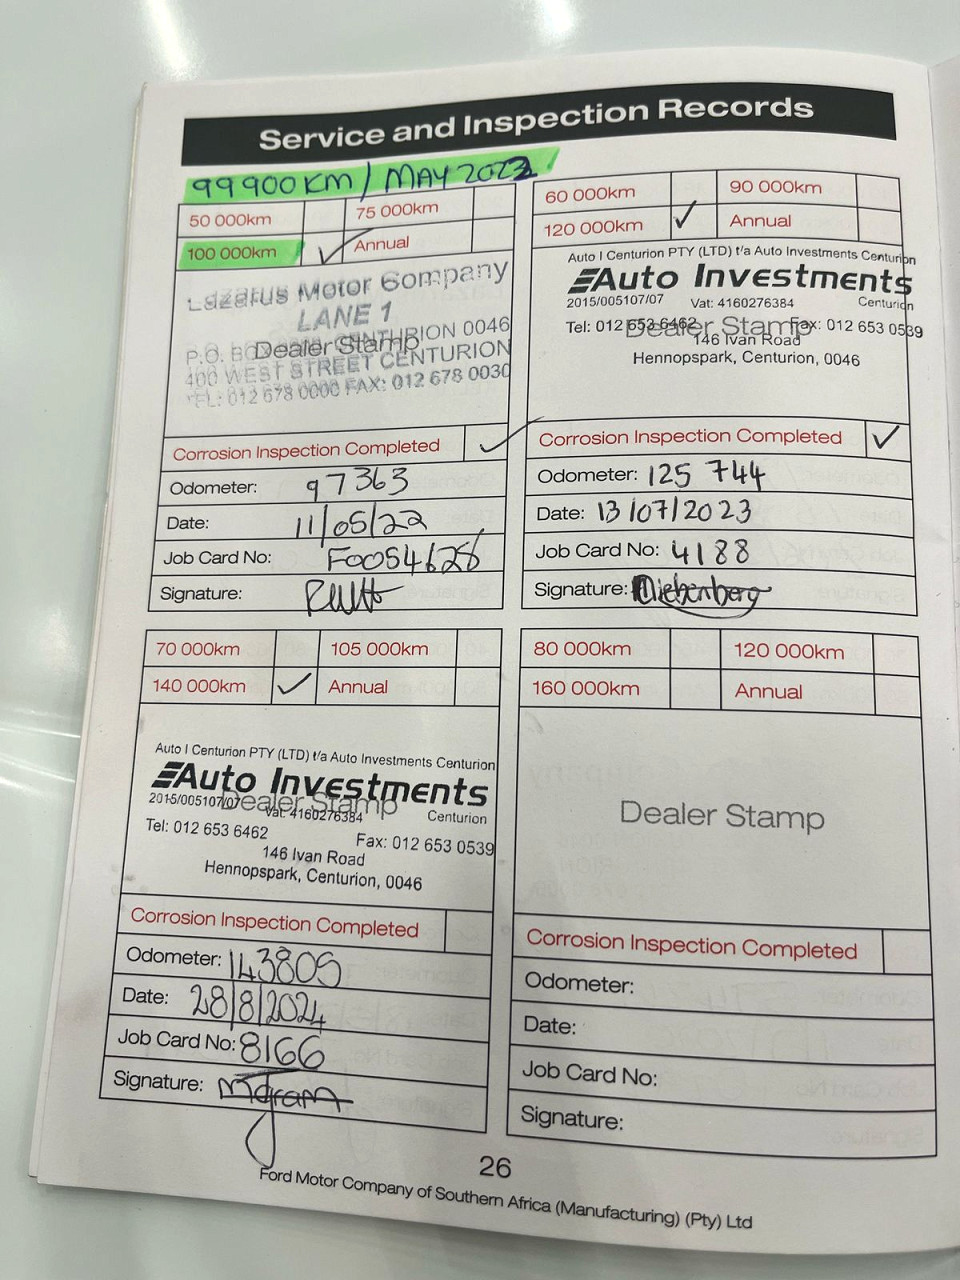 Service and Inspection Records
99900KM / MAY 2022
50 000km
75 000km
100 000km
Annual
Lazarus Motor Company
LANE 1
Dealer Stamp
P.O. BOX CENTURION 0046
400 WEST STREET CENTURION
TEL: 012 678 0000 FAX: 012 678 0030
Corrosion Inspection Completed
Odometer: 97363
Date: 11/05/22
Job Card No: F0054628
Signature:
60 000km
90 000km
120 000km
Annual
Auto I Centurion PTY (LTD) t/a Auto Investments Centurion
Auto Investments
2015/005107/07 Vat: 4160276384 Centurion
Dealer Stamp
Tel: 012 653 6462 Fax: 012 653 0539
146 Ivan Road
Hennopspark, Centurion, 0046
Corrosion Inspection Completed
Odometer: 125 744
Date: 13/07/2023
Job Card No: 4188
Signature:
70 000km
105 000km
140 000km
Annual
Auto I Centurion PTY (LTD) t/a Auto Investments Centurion
Auto Investments
Dealer Stamp
2015/005107/07 Vat: 4160276384 Centurion
Tel: 012 653 6462 Fax: 012 653 0539
146 Ivan Road
Hennopspark, Centurion, 0046
Corrosion Inspection Completed
Odometer: 143805
Date: 28/8/2024
Job Card No: 8166
Signature:
80 000km
120 000km
160 000km
Annual
Dealer Stamp
Corrosion Inspection Completed
Odometer:
Date:
Job Card No:
Signature:
26
Ford Motor Company of Southern Africa (Manufacturing) (Pty) Ltd